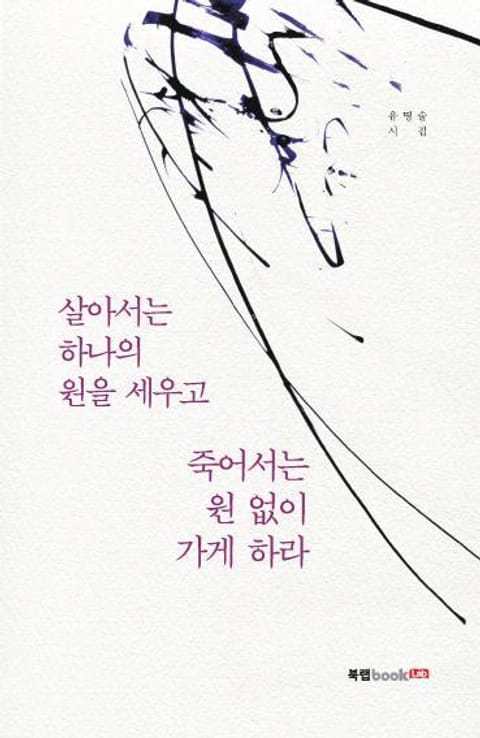 유명술
시집
살아서는
하나의
원을 세우고
죽어서는
원 없이
가게 하라
북랩book Lab